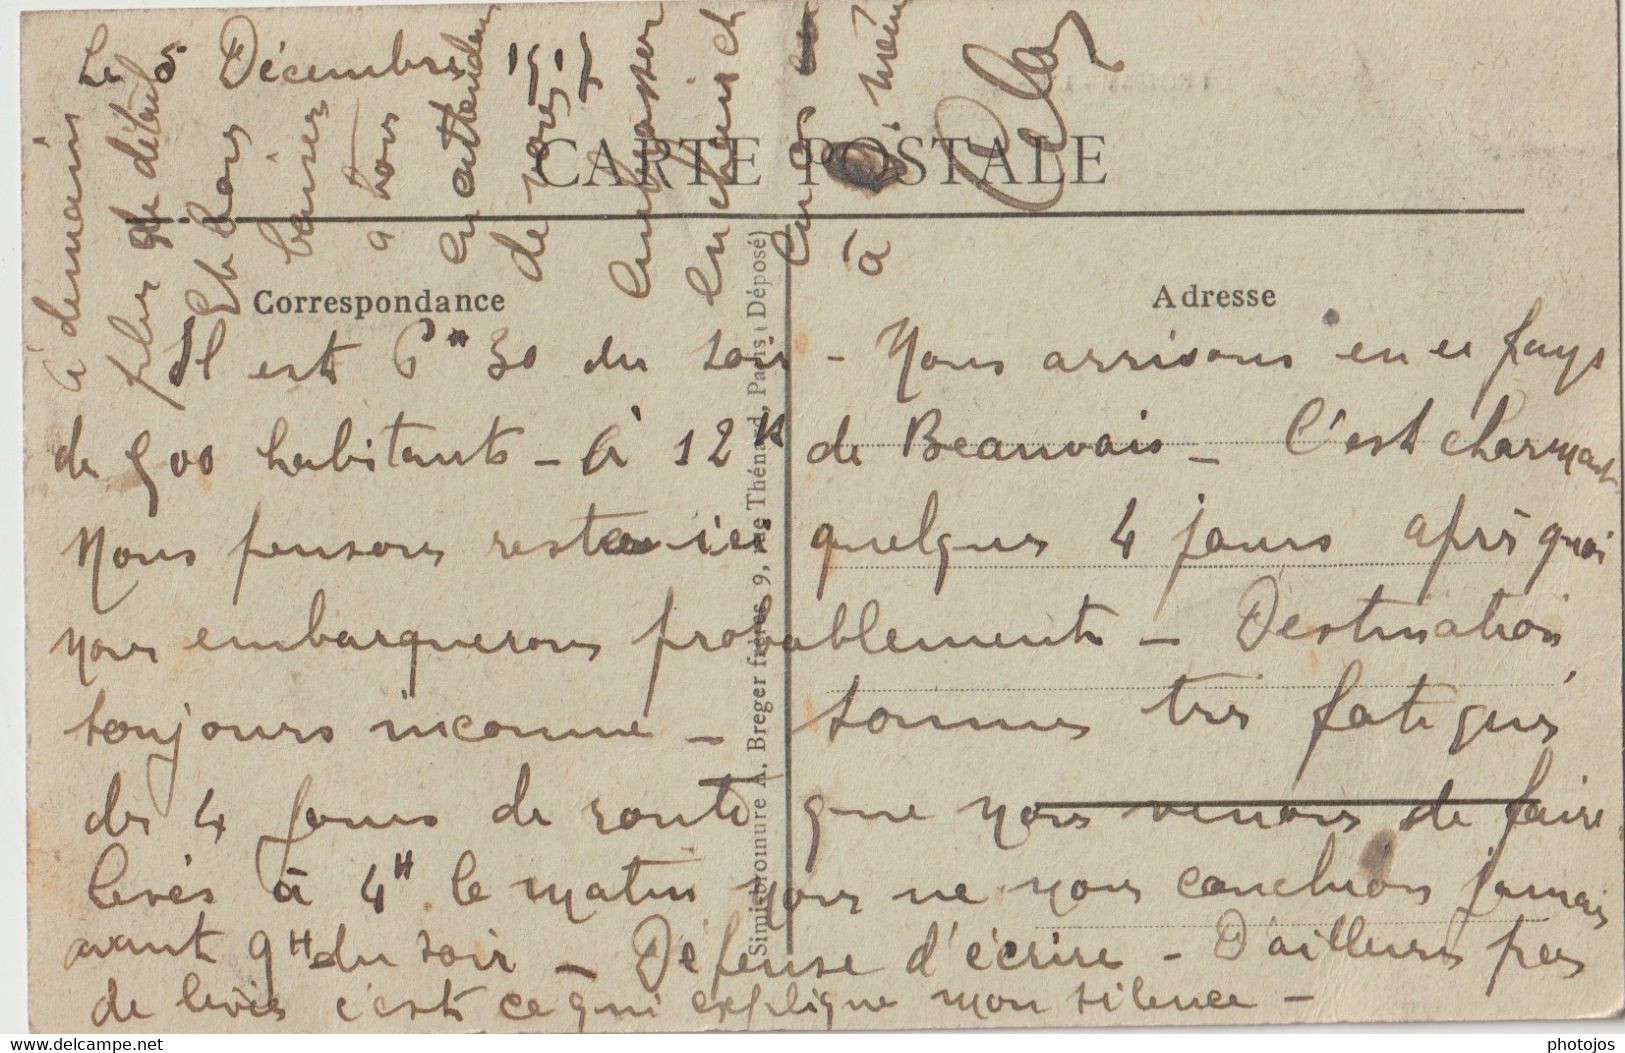 Le 5 Décembre 1915
CARTE POSTALE
Correspondance
Adresse
Il est 6H 30 du soir - Nous arrivons en ce pays
de 900 habitants - à 12 K de Beauvais - C'est charmant
Nous pensons rester ici quelques 4 jours après quoi
nous embarquerons probablement - Destination
toujours inconnue - sommes très fatigués
des 4 jours de route que nous venons de faire
levés à 4H le matin nous ne nous couchions jamais
avant 9H du soir - Défense d'écrire - D'ailleurs pas
de levée c'est ce qui explique mon silence -
à demain
plus de détails
Et bons
baisers
à tous
en attendant
de vous
embrasser
en chair et
en os
à
Simili-bromure A. Breger frères, 9, rue Thénard, Paris (Déposé)
photojos
www.delcampe.net